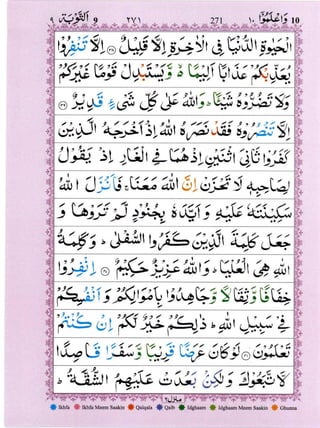 وَاعْلَمُوْٓا ١٠ 10 271 ٢٧١ اَلتَّوْبَة ٩ 9
الْحَيٰوةِ الدُّنْيَا فِى الْاٰخِرَةِ اِلَّا قَلِيْلٌ ﴿٣٨﴾ اِلَّا تَنْفِرُوْا
يُعَذِّبْكُمْ عَذَابًا اَلِيْمًا ۙ وَّ يَسْتَبْدِلْ قَوْمًا غَيْرَكُمْ
وَلَا تَضُرُّوْهُ شَيْـًٔا ؕ وَ اللّٰهُ عَلٰى كُلِّ شَىْءٍ قَدِيْرٌ ﴿٣٩﴾
اِلَّا تَنْصُرُوْهُ فَقَدْ نَصَرَهُ اللّٰهُ اِذْ اَخْرَجَهُ الَّذِيْنَ
كَفَرُوْا ثَانِىَ اثْنَيْنِ اِذْ هُمَا فِى الْغَارِ اِذْ يَقُوْلُ
لِصَاحِبِهٖ لَا تَحْزَنْ اِنَّ اللّٰهَ مَعَنَا ۚ فَاَنْزَلَ اللّٰهُ
سَكِيْنَتَهٗ عَلَيْهِ وَ اَيَّدَهٗ بِجُنُوْدٍ لَّمْ تَرَوْهَا وَ
جَعَلَ كَلِمَةَ الَّذِيْنَ كَفَرُوا السُّفْلٰى ؕ وَ كَلِمَةُ
اللّٰهِ هِىَ الْعُلْيَا ؕ وَ اللّٰهُ عَزِيْزٌ حَكِيْمٌ ﴿٤٠﴾ اِنْفِرُوْا
خِفَافًا وَّ ثِقَالًا وَّ جَاهِدُوْا بِاَمْوَالِكُمْ وَ اَنْفُسِكُمْ
فِىْ سَبِيْلِ اللّٰهِ ؕ ذٰلِكُمْ خَيْرٌ لَّكُمْ اِنْ كُنْتُمْ
تَعْلَمُوْنَ ﴿٤١﴾ لَوْ كَانَ عَرَضًا قَرِيْبًا وَّ سَفَرًا قَاصِدًا
لَّاتَّبَعُوْكَ وَ لٰكِنْۢ بَعُدَتْ عَلَيْهِمُ الشُّقَّةُ ؕ
منزل ٢
Ikhfa Ikhfa Meem Saakin Qalqala Qalb Idghaam Idghaam Meem Saakin Ghunna